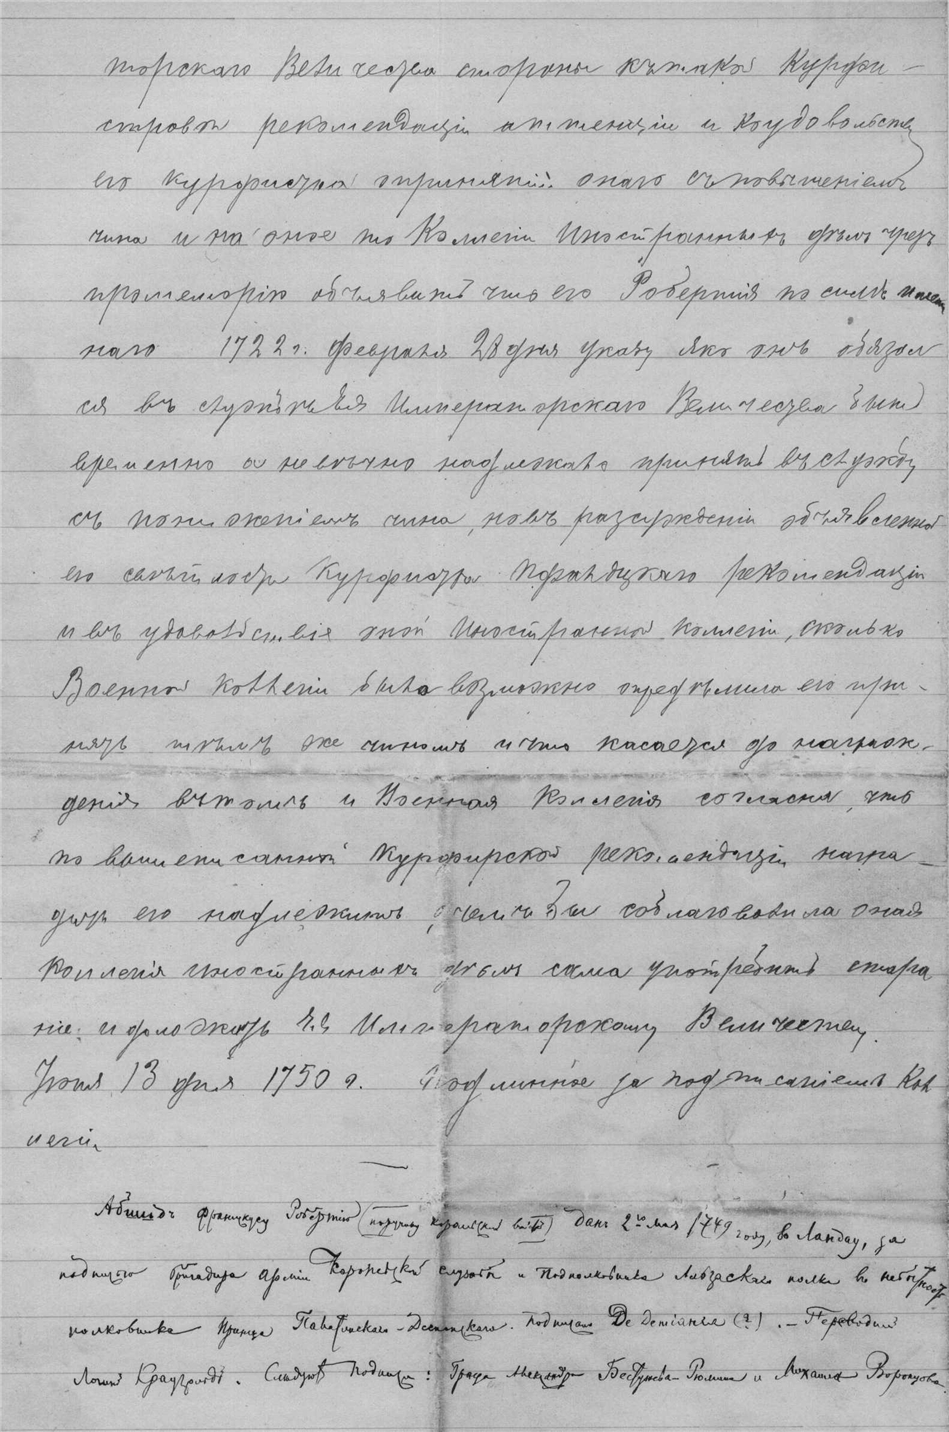 торскаго Величества стороны къ такой Курфи-
стровой рекомендацiи аттенцiи и къ удовольств
его курфистра о принятiй онаго съ повышенiемъ
чина и на оное то Коллегiи Иностранныхъ дѣлъ чрезъ
промеморiю объявить что его Робертiя по силѣ имен
наго 1722 г. Февраля 28 дня указу яко онъ обязал
ся въ службѣ Ея Императорскаго Величества быть
временно а не вѣчно надлежало принять въ службу
съ пониженiемъ чина, но въ разсужденiи объявленной
его свѣтлости Курфистра Пфальцкаго рекомендацiи
и въ удовольствiе оной Иностранной коллегiи, сколько
Военной коллегiи было возможно опредѣлила его при-
нять тѣмъ же чиномъ и что касается до награж-
денiя въ томъ и Военная Коллегiя согласна, что
по вышеписанной курфирской рекомендацiи награ-
дить его надлежитъ, о чемъ бы соблаговолила оная
Коллегiя иностранныхъ дѣлъ сама употребить стара
нiе и доложить Ея Императорскому Величеству.
Iюня 13 дня 1750 г. Подлинное за подписанiемъ Кол
легiи.
Абшидъ Франциску Робертiю (поручику Королевской) данъ 2го мая 1749 году, въ Ландау, за
подписью бригадира армiи Королевской службы и Подполковника Альзаскаго полка въ небытность
полковника Принца . Подписалъ Де (?). – Переводилъ
. Слѣдуютъ подписи: Графа Алексѣя Бестужева-Рюмина и Михаила Воронцова.